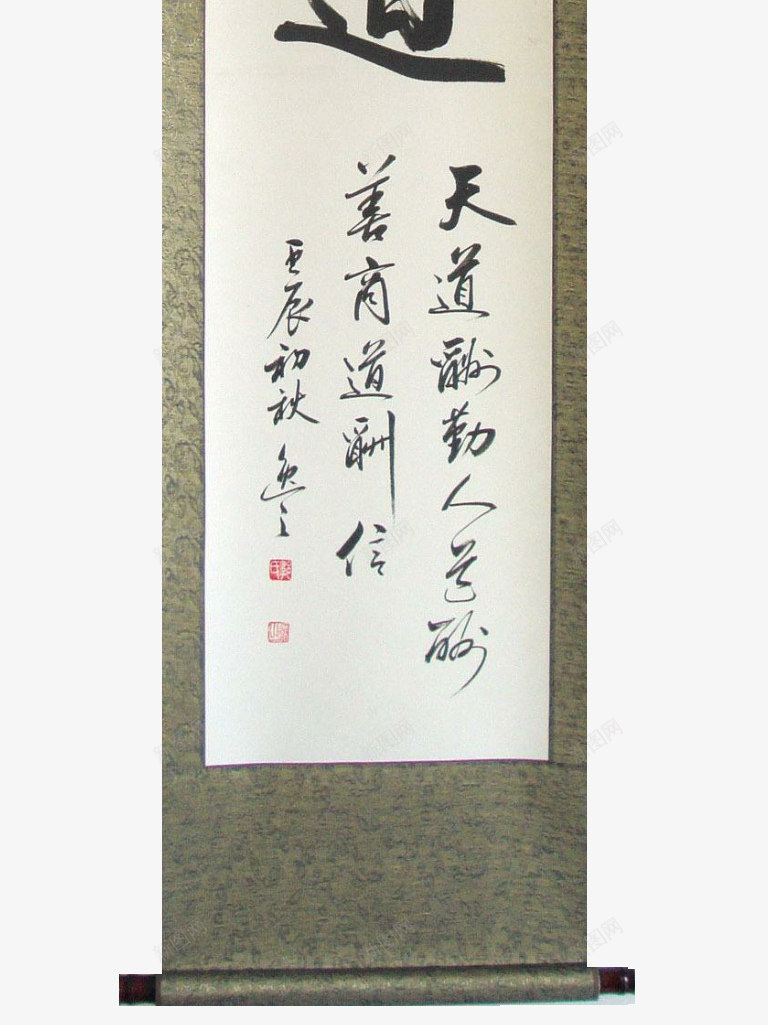 道
天道酬勤人道酬
善商道酬信
壬辰初秋